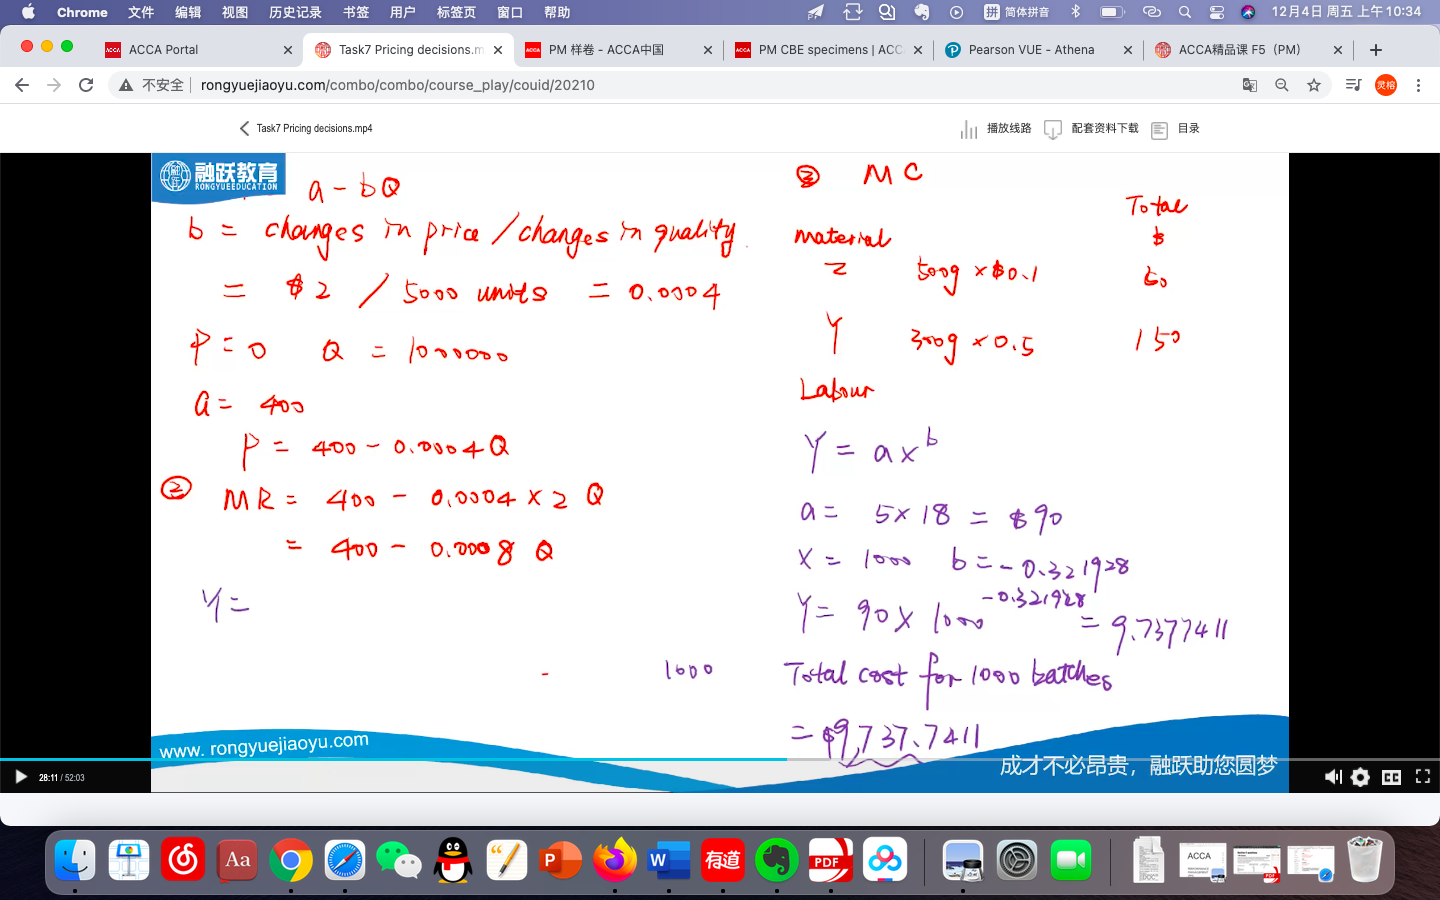 Chrome 文件 编辑 视图 历史记录 书签 用户 标签页 窗口 帮助 拼 简体拼音 12月4日 周五 上午 10:34
ACCA Portal Task7 Pricing decisions.m PM 样卷 - ACCA中国 PM CBE specimens | ACC Pearson VUE - Athena ACCA精品课 F5（PM）
不安全 rongyuejiaoyu.com/combo/combo/course_play/couid/20210 灵榕
Task7 Pricing decisions.mp4 播放线路 配套资料下载 目录
融跃教育
RONGYUEEDUCATION
a - bQ
b = changes in price / changes in quality.
= $2 / 5000 units = 0.0004
P = 0 Q = 1000000
a = 400
P = 400 - 0.0004Q
② MR = 400 - 0.0004 × 2 Q
= 400 - 0.0008 Q
Y =
1000
③ MC
Total
$
Material
Z 500g × $0.1 50
Y 300g × 0.5 150
Labour
Y = ax^b
a = 5×18 = $90
X = 1000 b = -0.321928
Y = 90 × 1000^-0.321928 = 9.7377411
Total cost for 1000 batches
= $9,737.7411
www. rongyuejiaoyu.com
成才不必昂贵，融跃助您圆梦
28:11 / 52:03
CC
Aa P W 有道 PDF ACCA